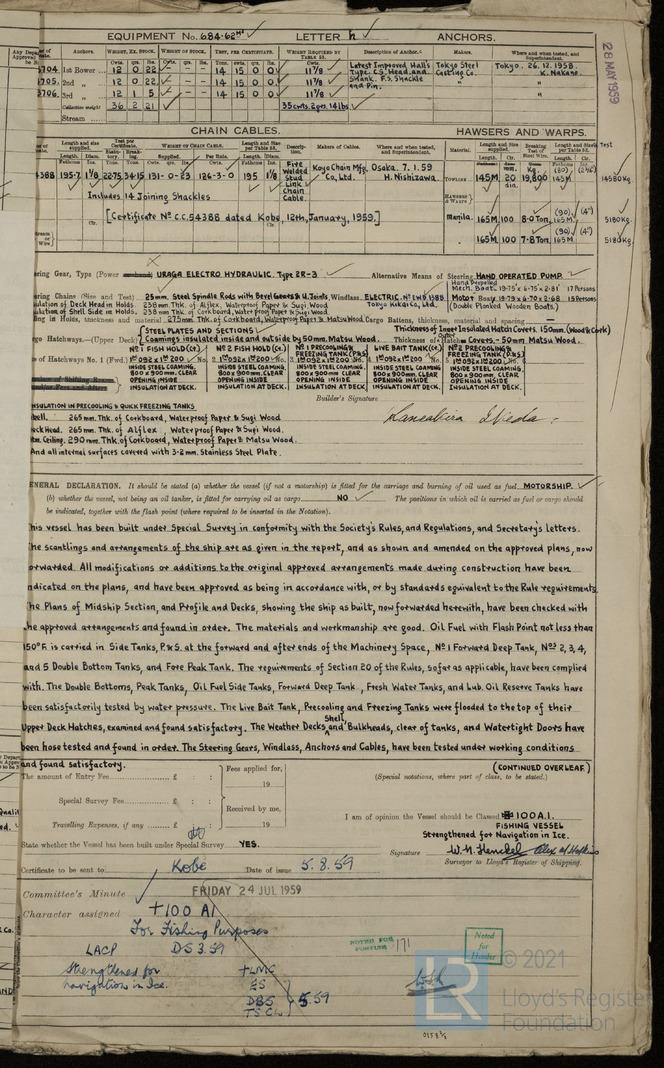 EQUIPMENT No. 684.62 LETTER h ANCHORS.
Anchors. WEIGHT, EX. STOCK. WEIGHT OF STOCK. TEST, PER CERTIFICATE. WEIGHT REQUIRED BY TABLE 53. Description of Anchor. Makers. Where and when tested, and Superintendent.
Cwts. qrs. lbs. Cwts. qrs. lbs. Cwts.
3704 1st Bower 12 0 22 14 15 0 0 11 7/8 Latest Improved Hall's Tokyo Steel Tokyo. 26.12.1958.
3705 2nd 12 0 22 14 15 0 0 11 7/8 Type. C.S. Head, and Casting Co. K. Nakano.
3706 3rd 12 1 5 14 15 0 0 11 7/8 Shank. F.S. Shackle and Pin.
Collective weight 36 2 21 35cwts. 2qrs. 14lbs.
Stream
28 MAY 1959
CHAIN CABLES. HAWSERS AND WARPS.
Length and size supplied. Test per Certificate. WEIGHT OF CHAIN CABLE. Length and Size per Table 53. Description. Makers of Cables. Where and when tested, and Superintendent. Material. Length and Size supplied. Breaking Test of Steel Wire. Length and Size per Table 53. Test
54388 195.7 1 1/8 22.75 34.15 131-0-23 124-3-0 195 1 1/8 Fire Welded Stud Link Chain Cable. Koyo Chain Mfg. Co., Ltd. Osaka. 7.1.59 H. Nishizawa. TOWLINE 145M 20 dia. 19,800 145M 14580Kg.
Includes 14 Joining Shackles
HAWSERS & WARPS
[Certificate No C.C. 54388 dated Kobe, 12th, January, 1959.] Manila. 165M 100 8.0 Ton (90) 165M (4") 5180Kg.
165M 100 7.8 Ton (90) 165M (4") 5180Kg.
Steering Gear, Type (Power) URAGA ELECTRO HYDRAULIC. Type 2R-3 Alternative Means of Steering HAND OPERATED PUMP.
Hand Propelled Mech. Boat. 19.75 x 6.75 x 2.81 17 Persons
Steering Chains (Size and Test) 25mm. Steel Spindle Rods with Bevel Gears & U. Joints, Windlass. ELECTRIC. Motor Boat. 19.79 x 6.70 x 2.68 15 Persons
Insulation of Deck Head in Holds. 238mm Thk. of Alflex, Waterproof Paper & Sugi Wood Tokyo Kikai Co., Ltd. (Double Planked Wooden Boats.)
Insulation of Shell Side in Holds. 238mm Thk. of Corkboard, Waterproof Paper & Sugi Wood
Ceiling in Holds, thickness and material 275mm Thk. of Corkboard, Waterproof Paper & Matsu Wood Cargo Battens, thickness, material and spacing
Cargo Hatchways.—(Upper Deck) {STEEL PLATES AND SECTIONS / Coamings insulated inside and outside by 50mm. Matsu Wood. Thickness of Inner Insulated Hatch Covers. 150mm. (Wood & Cork)
Thickness of Outer Hatch Covers. – 50mm Matsu Wood.
Size of Hatchways No. 1 (Fwd.) No 1 FISH HOLD (CT.) No 2 FISH HOLD (CT.) No 1 PRECOOLING & FREEZING TANK (P&S.) LIVE BAIT TANK (CT.) No 2 PRECOOLING & FREEZING TANK (P&S.)
1m092 x 1m200 1m092 x 1m200 1m092 x 1m200 1m092 x 1m200 1m092 x 1m200
INSIDE STEEL COAMING. INSIDE STEEL COAMING. INSIDE STEEL COAMING. INSIDE STEEL COAMING. INSIDE STEEL COAMING.
800 x 900mm. CLEAR 800 x 900mm. CLEAR 800 x 900mm. CLEAR 800 x 900mm. CLEAR 800 x 900mm. CLEAR
OPENING INSIDE OPENING INSIDE OPENING INSIDE OPENING INSIDE OPENING INSIDE
INSULATION AT DECK. INSULATION AT DECK. INSULATION AT DECK. INSULATION AT DECK. INSULATION AT DECK.
Builder's Signature
INSULATION IN PRECOOLING & QUICK FREEZING TANKS
Shell. 265mm. Thk. of Corkboard, Waterproof Paper & Sugi Wood.
Deck Head. 265mm. Thk. of Alflex, Waterproof Paper & Sugi Wood.
Btm. Ceiling. 290mm. Thk. of Corkboard, Waterproof Paper & Matsu Wood.
And all internal surfaces covered with 3.2mm. Stainless Steel Plate.
GENERAL DECLARATION. It should be stated (a) whether the vessel (if not a motorship) is fitted for the carriage and burning of oil used as fuel. MOTORSHIP.
(b) whether the vessel, not being an oil tanker, is fitted for carrying oil as cargo NO The positions in which oil is carried as fuel or cargo should
be indicated, together with the flash point (where required to be inserted in the Notation).
This vessel has been built under Special Survey in conformity with the Society's Rules, and Regulations, and Secretary's letters.
The scantlings and arrangements of the ship are as given in the report, and as shown and amended on the approved plans, now
forwarded. All modifications or additions to the original approved arrangements made during construction have been
indicated on the plans, and have been approved as being in accordance with, or by standards equivalent to the Rule requirements.
The Plans of Midship Section, and Profile and Decks, showing the ship as built, now forwarded herewith, have been checked with
the approved arrangements and found in order. The materials and workmanship are good. Oil Fuel with Flash Point not less than
150°F. is carried in Side Tanks, P.&S. at the forward and after ends of the Machinery Space, No 1 Forward Deep Tank, Nos 2, 3, 4,
and 5 Double Bottom Tanks, and Fore Peak Tank. The requirements of Section 20 of the Rules, so far as applicable, have been complied
with. The Double Bottoms, Peak Tanks, Oil Fuel Side Tanks, Forward Deep Tank, Fresh Water Tanks, and Lub. Oil Reserve Tanks have
been satisfactorily tested by water pressure. The Live Bait Tank, Precooling and Freezing Tanks were flooded to the top of their
Upper Deck Hatches, examined and found satisfactory. The Weather Decks, Shell, and Bulkheads, clear of tanks, and Watertight Doors have
been hose tested and found in order. The Steering Gears, Windlass, Anchors and Cables, have been tested under working conditions
and found satisfactory. (CONTINUED OVERLEAF.)
The amount of Entry Fee £ : : Fees applied for, (Special notations, where part of class, to be stated.)
19
Special Survey Fee £ : : Received by me, I am of opinion the Vessel should be Classed ✠100A1.
Travelling Expenses, if any £ : : 19 FISHING VESSEL
Strengthened for Navigation in Ice.
State whether the Vessel has been built under Special Survey YES. Signature
Surveyor to Lloyd's Register of Shipping.
Certificate to be sent to Kobe Date of issue 5.8.59
Committee's Minute FRIDAY 24 JUL 1959
Character assigned +100 A1
For Fishing Purposes
LACP DS 3.59
Strengthened for +LMC
navigation in Ice. ES
DBS 5.59
TS CL
NOTED FOR 171
Noted for Header
LR © 2021
Lloyd's Register
Foundation